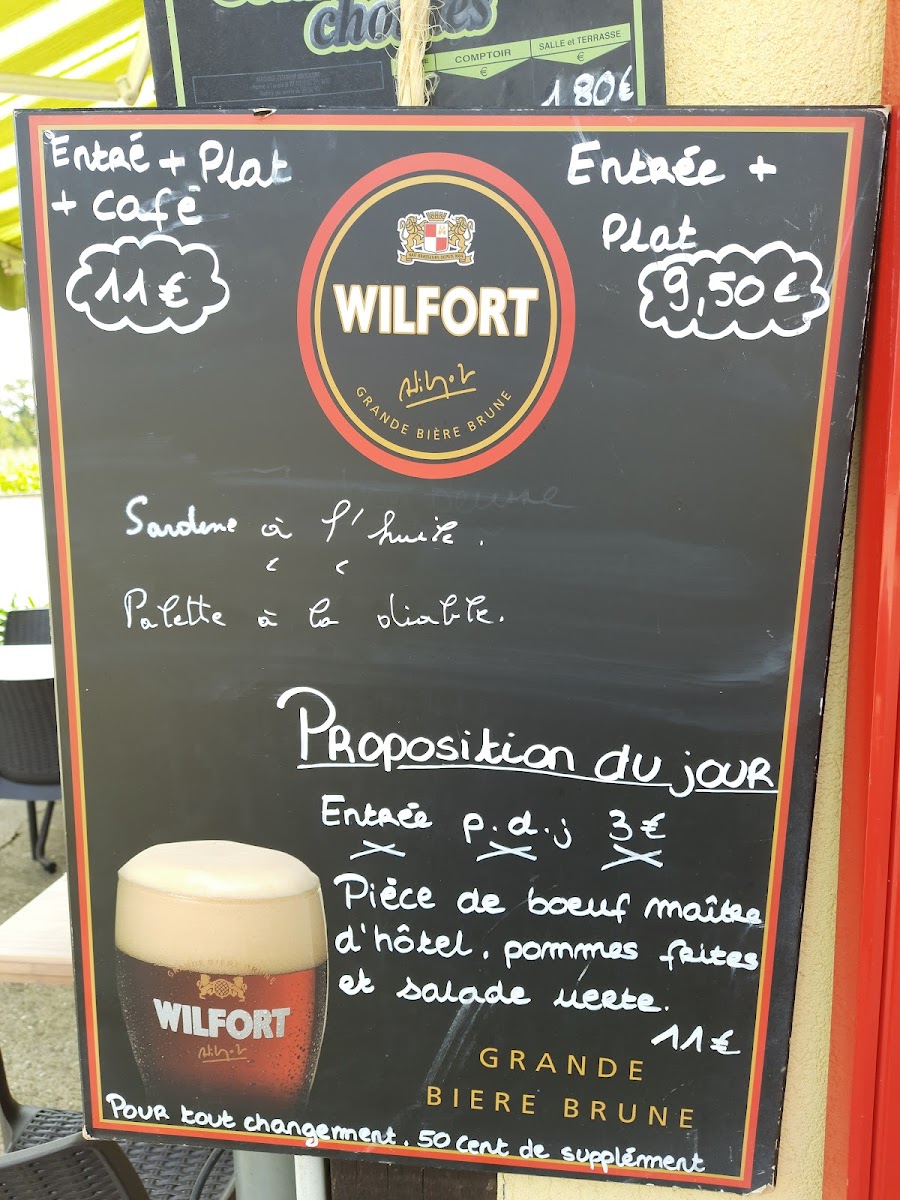 choisies
COMPTOIR
€
SALLE et TERRASSE
€
1 80€
Entré + Plat
+ café
11 €
Entrée +
Plat
9,50 €
WILFORT
GRANDE BIÈRE BRUNE
Sardine à l'huile.
Palette à la diable.
Proposition du jour
Entrée p.d.j 3€
Pièce de boeuf maître
d'hôtel, pommes frites
et salade verte.
11€
GRANDE BIÈRE BRUNE
WILFORT
GRANDE
BIERE BRUNE
Pour tout changement, 50 cent de supplément